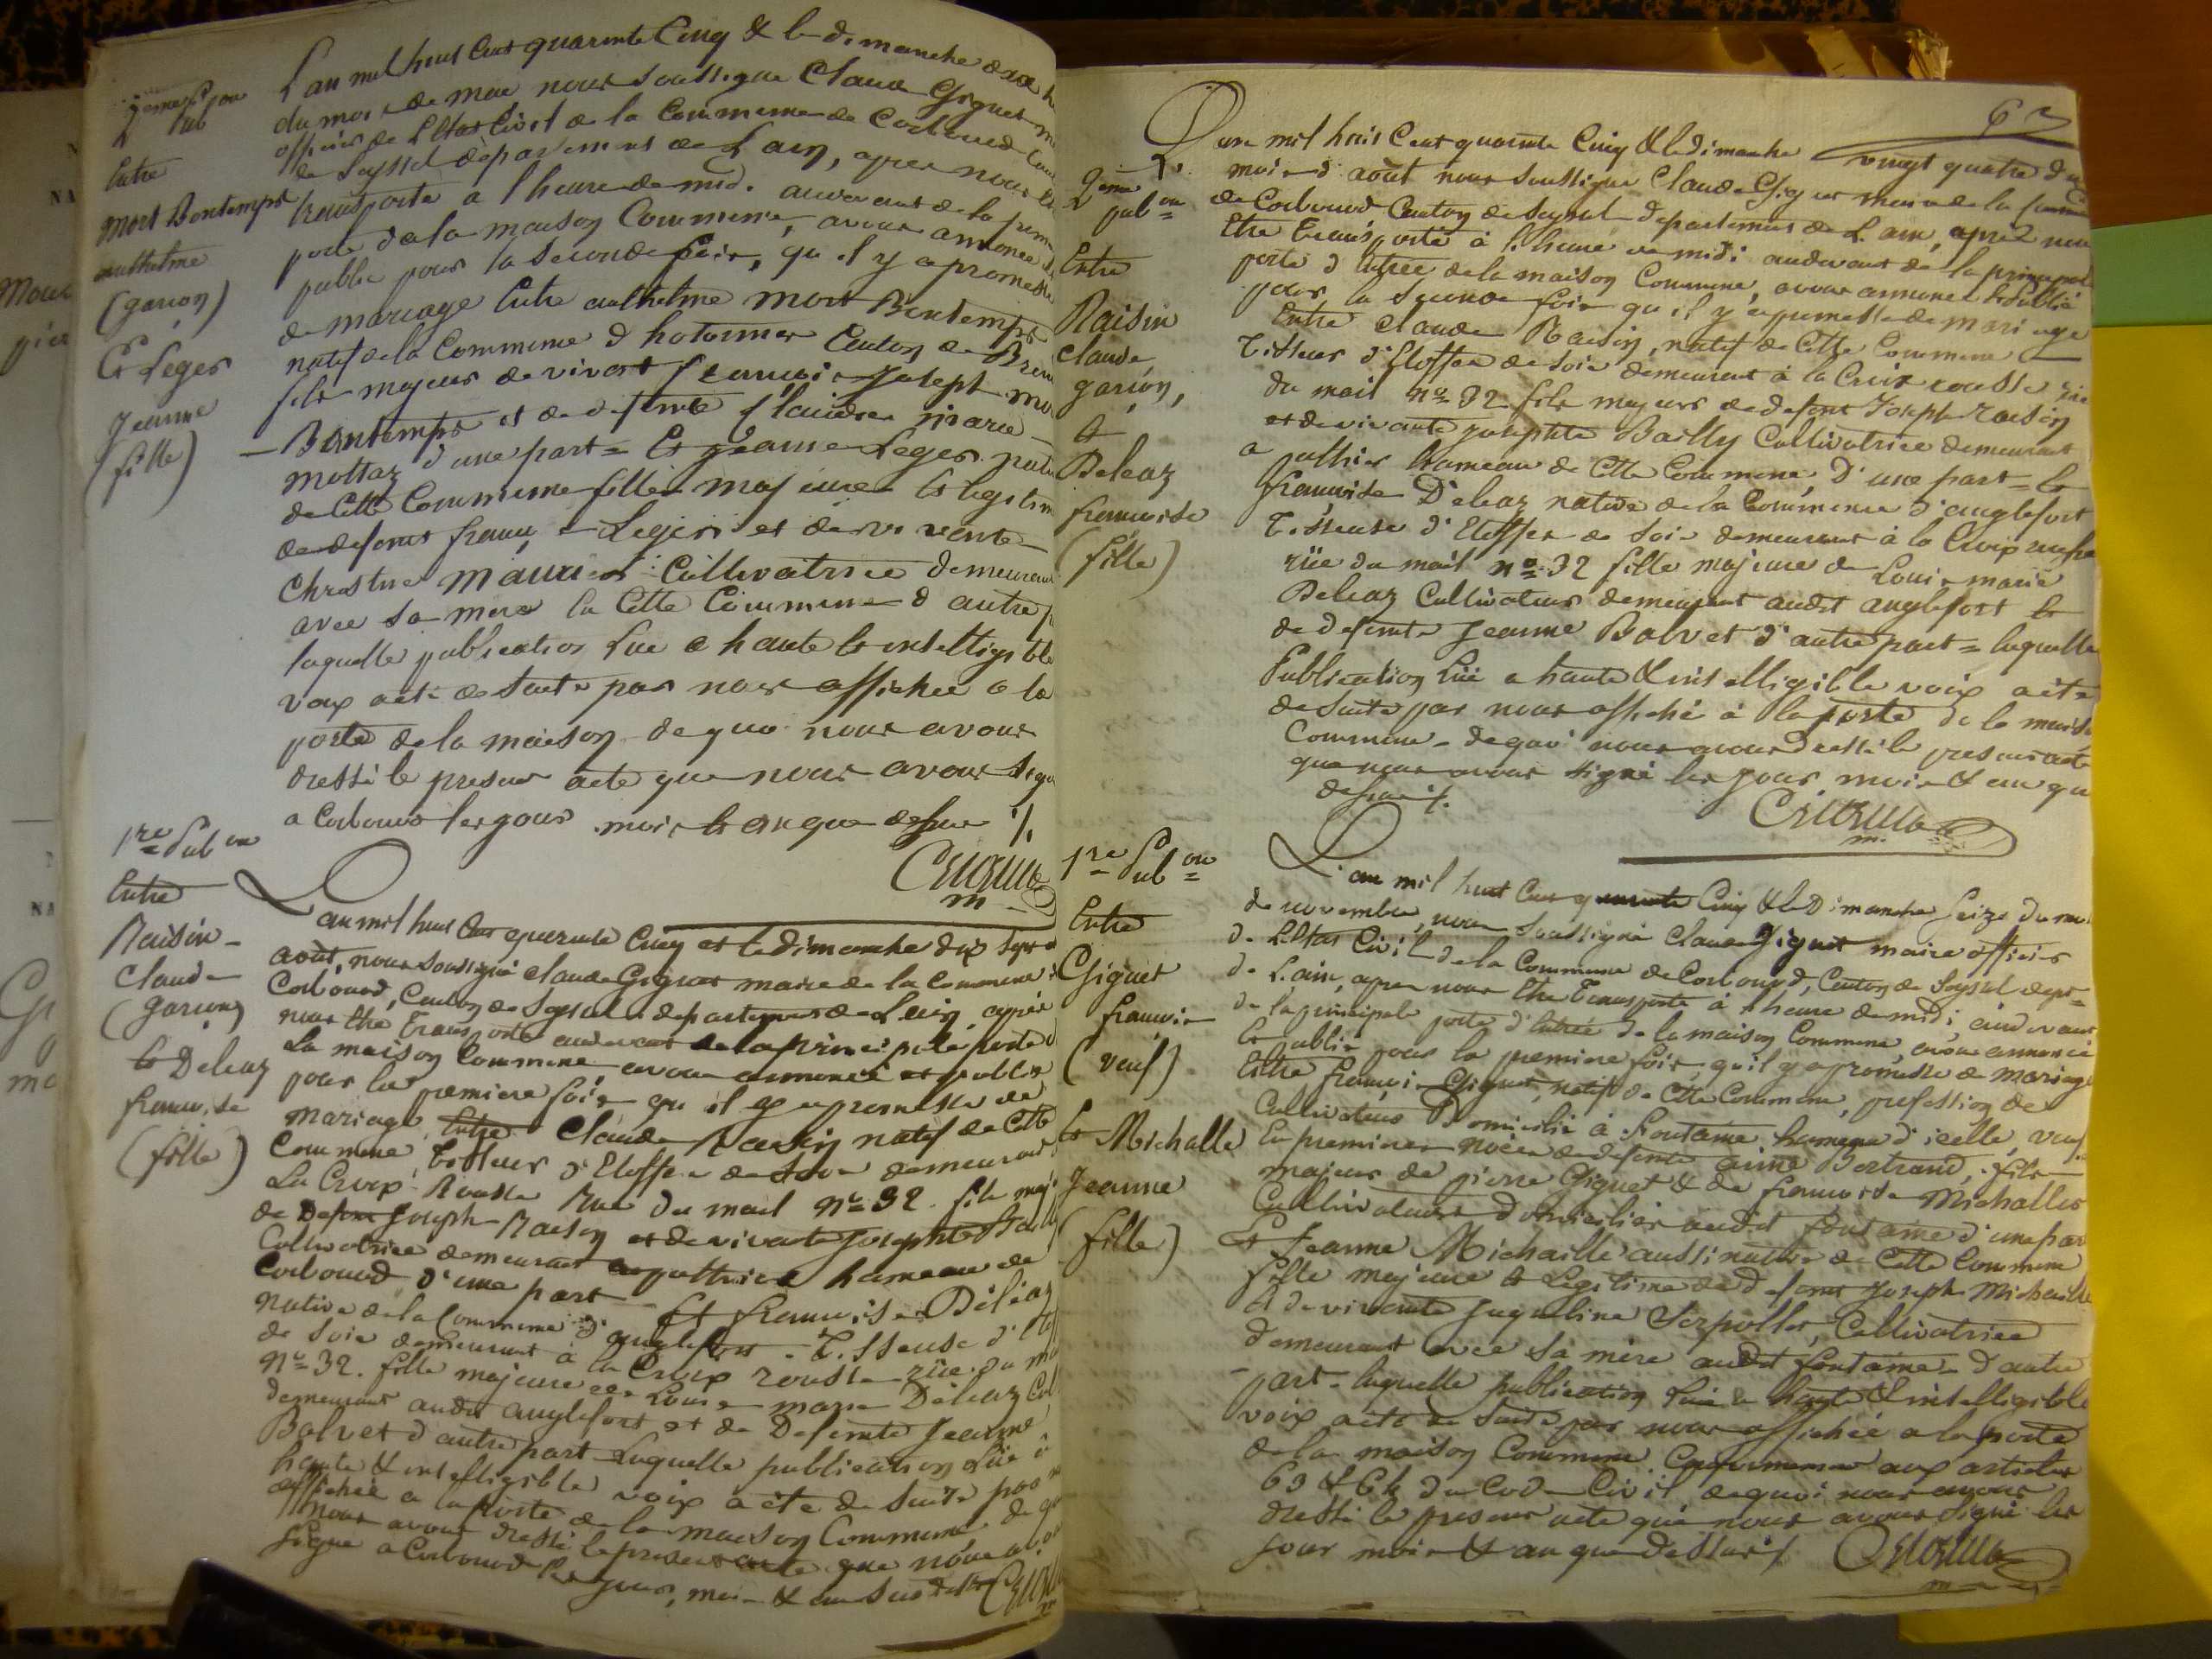 2eme Pub on
Entre
mort Bontemps
anthelme
(garçon)
Et Leger
Jeanne
(fille)
L'an mil huit cent quarante cinq & le dimanche
du mois de mai nous soussigné Claude Giguet
officier de l'Etat Civil de la Commune de Corbonod
de Seyssel département de L'ain, apres nous
transporté a l'heure de midi audevant de la
porte de la maison Commune, avons annoncé
publié pour la seconde fois, qu'il y a promesse
de mariage Entre anthelme mort Bontemps
natif de la Commune d'hotonnes Canton de
fils majeur de vivant francois Joseph
Bontemps et de defunte Claudine marie
mottaz d'une part = Et Jeanne Leger
de Cette Commune fille majeure & legitime
de defunt francois Leger et de vivante
Christine Cultivatrice demeurant
avec sa mere en Cette Commune d'autre
laquelle publication Lue a haute & intelligible
voix a été de suite par nous affichée a la
porte de la maison de quoi nous avons
dressé le present acte que nous avons signé
a Corbonod les jour mois & an que dessus ./.
1re Pub on
Entre
Raisin
Claude
(garçon)
& Deleaz
francoise
(fille)
L'an mil huit Cent quarante Cinq et le dimanche dix sept
août, nous soussigné Claude Giguet maire de la Commune
Corbonod, Canton de Seyssel departement de L'ain, après
nous etre transporté audevant de la principale porte d
La maison Commune, avons annoncé et publié
pour la premiere fois qu'il y a promesse de
mariage, Entre Claude Raisin natif de Cette
Commune, tisseur d'Etoffes de Soie demeurant
La Croix Rousse Rue du mail No 32. fils maj.
de Defunt Joseph Raisin et de vivante Josephte
Cultivatrice demeurant a puthier hameau de
Corbonod d'une part Et francoise Déléaz
native de la Commune d'anglefort - Tisseuse d'
de Soie demeurant à la Croix rousse rüe du
No 32. fille majeure de Louis marie Déléaz
demeurant audit anglefort et de Defunte Jeanne
Bolvet d'autre part Laquelle publication Lüe à
haute & intelligible voix a été de suite par
affichée a la Porte de la maison Commune de
nous avons dressé le present acte que nous
signé a Corbonod les jour, mois & an sus dits
67
2eme
pub on
Entre
Raisin
Claude
garçon,
&
Deleaz
francoise
(fille)
L'an mil huit Cent quarante Cinq & le dimanche vingt quatre du
mois d'août nous soussigné Claude Giguet maire de la Commune
de Corbonod, Canton de Seyssel departement de L'ain, après nous
Etre transporté à l'heure de midi audevant de la principale
porte d'Entrée de la maison Commune, avons annoncé & publié
pour la seconde fois qu'il y a promesse de mariage
Entre Claude Raisin, natif de Cette Commune
Tisseur d'Etoffes de Soie demeurant à la Croix rousse rüe
du mail No 32 fils majeur de defunt Joseph Raisin
et de vivante Josephte Bailly Cultivatrice demeurant
a puthier hameau de Cette Commune, D'une part = Et
francoise Déleaz native de la Commune d'anglefort
Tisseuse d'Etoffes de Soie demeurant à la Croix rousse
rüe du mail No 32 fille majeure de Louis marie
Deleaz Cultivateur demeurant audit anglefort &
de defunte Jeanne Bolvet d'autre part = laquelle
Publication Lüe a haute & intelligible voix a été
de suite par nous affiché à la porte de la maison
Commune - de quoi nous avons dressé le present acte
que nous avons signé les jour mois & an que
dessus ./.
1re Pub on
Entre
Giguet
francois
(veuf)
& Michalle
Jeanne
(fille)
L'an mil huit Cent quarante Cinq & le Dimanche seize du mois
de novembre, nous soussigné Claude Giguet maire officier
de L'Etat Civil de la Commune de Corbonod, Canton de Seyssel dept =
de L'ain, apres nous Etre transporté à l'heure de midi, audevant
de la principale porte d'Entrée de la maison Commune, avons annoncé
Et publié pour la premiere fois, qu'il y a promesse de mariage
Entre francois Giguet, natif de Cette Commune, profession de
Cultivateur Domicilié à fontaine hameau d'icelle, veuf
En premieres noces de defunte aimé Bertrand, fils
majeur de pierre Giguet & de francoise Michalles
Cultivateurs domiciliés audit fontaine d'une part
Et Jeanne Michaille aussi native de Cette Commune
fille majeure & Légitime de defunt Joseph Michaille
& de vivante Jaqueline Serpollet, Cultivatrice
demeurant avec sa mère audit fontaine d'autre
part - laquelle publication Lüe a haute & intelligible
voix a été de suite par nous affichée a la porte
de la maison Commune Conformement aux articles
63 & 64 du Code Civil de quoi nous avons
dressé le present acte que nous avons signé les
jour mois & an que dessus ./.